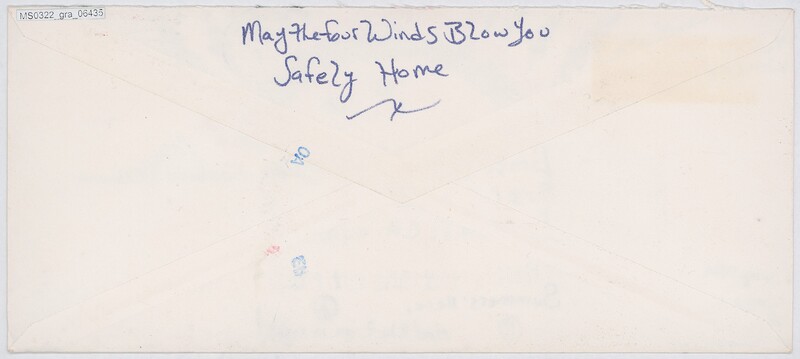 MS0322_gra_06435
May the four Winds Blow You
Safely Home